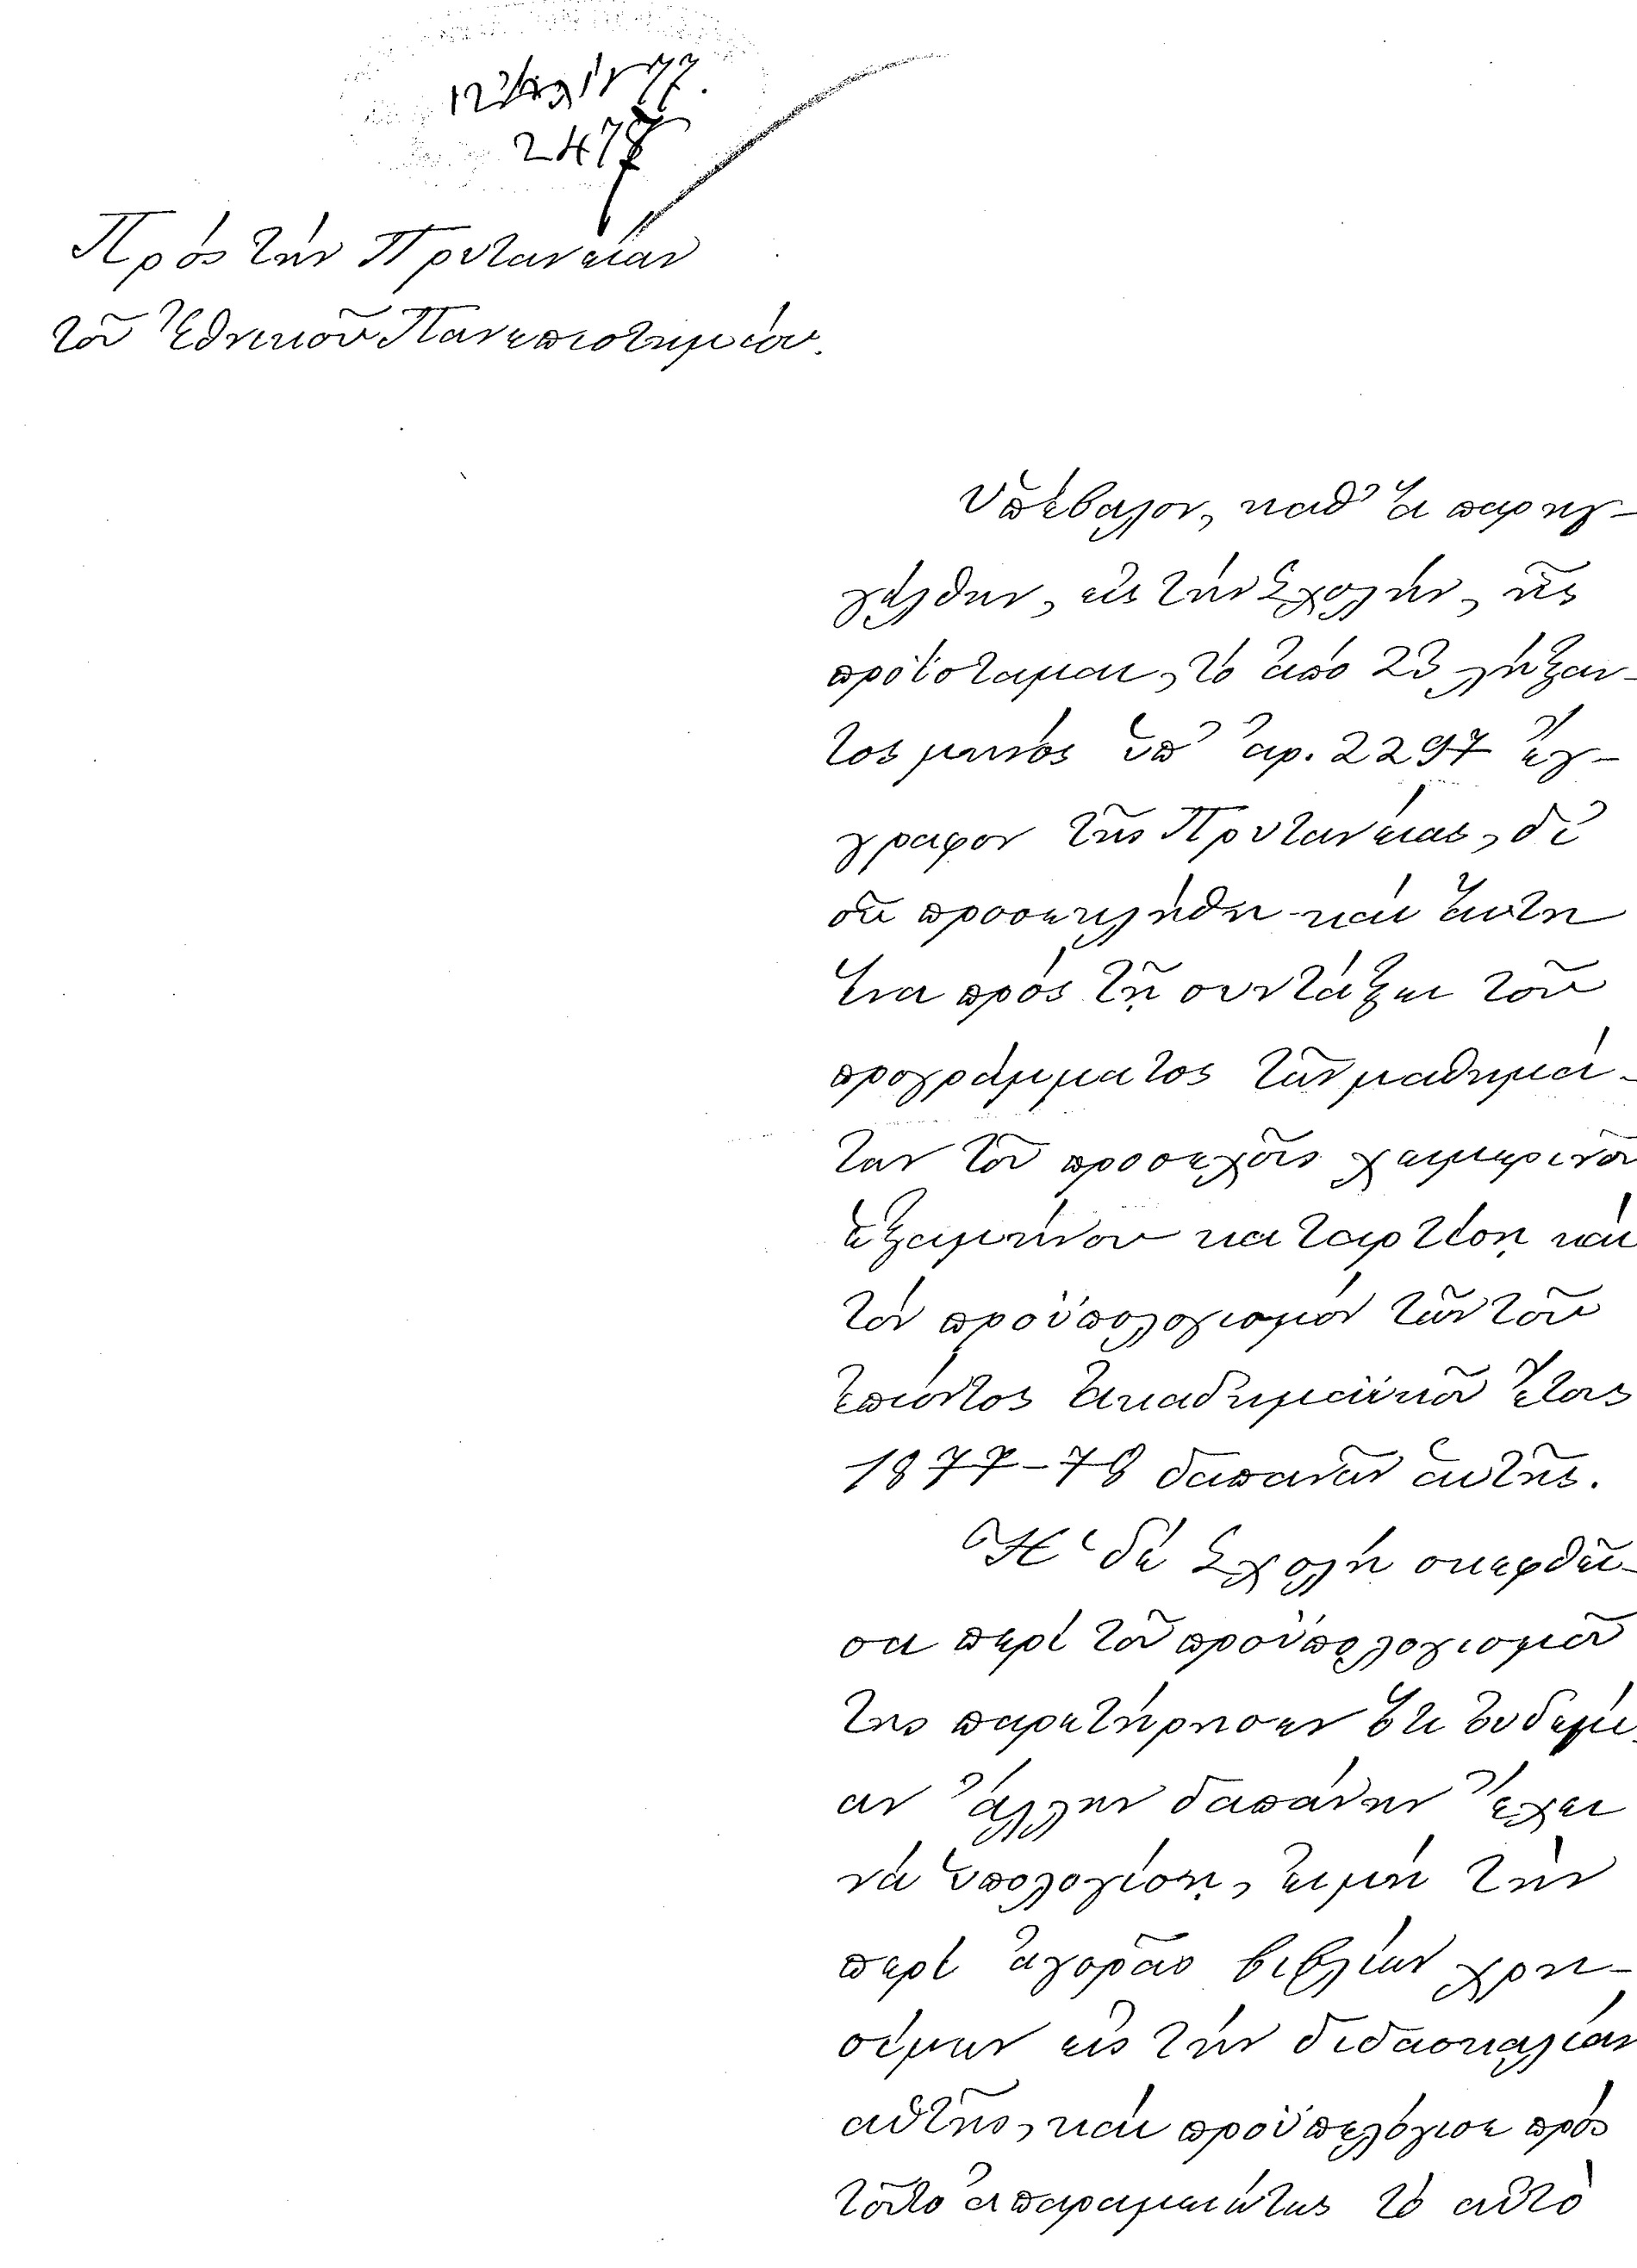 77.
2478
Πρὸς τὴν Πρυτανείαν
τοῦ Ἐθνικοῦ Πανεπιστημίου.
Ὑπέβαλον, καθ' ἃ παρηγ-
γέλθην, εἰς τὴν Σχολήν, ἧς
προΐσταμαι, τὸ ἀπὸ 23 λήξαν-
τος μηνὸς ὑπ' ἀρ. 2297 ἔγ-
γραφον τῆς Πρυτανείας, δι'
οὗ προσεκλήθη καὶ αὕτη
ἵνα πρὸς τῇ συντάξει τοῦ
προγράμματος τῶν μαθημά-
των τοῦ προσεχοῦς χειμερινοῦ
ἑξαμήνου καταρτίσῃ καὶ
τὸν προϋπολογισμὸν τῶν τοῦ
ἐπιόντος ἀκαδημαϊκοῦ ἔτους
1877-78 δαπανῶν αὑτῆς.
Ἡ δὲ Σχολὴ σκεφθεῖ-
σα περὶ τοῦ προϋπολογισμοῦ
της παρετήρησεν ὅτι οὐδεμί-
αν ἄλλην δαπάνην ἔχει
νὰ ὑπολογίσῃ, εἰμὴ τὴν
περὶ ἀγορᾶς βιβλίων χρη-
σίμων εἰς τὴν διδασκαλίαν
αὐτῆς, καὶ προϋπελόγισε πρὸς
τοῦτο ἀπαραμειώτως τὸ αὐτὸ